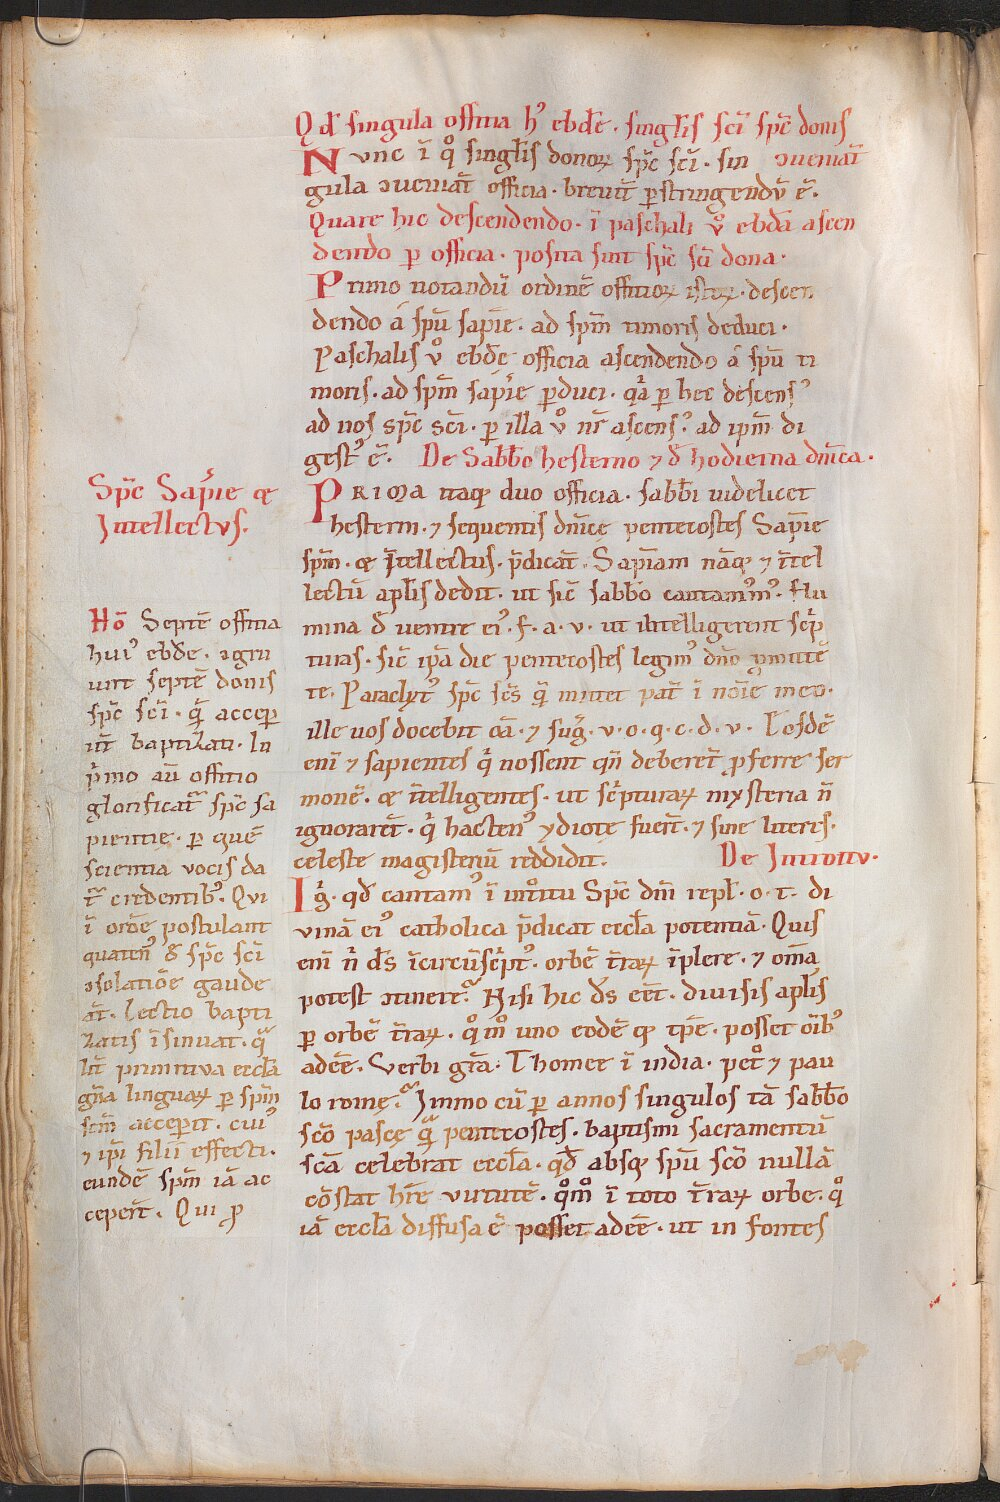 Qđ singula officia hꝰ ebdē · singlis sc̄i sp̄c donis
Nvnc ī qͦ singlis donoꝝ sp̄c sc̄i · sin ꝯueniāt
gula ꝯueniāt officia · breuit̄ ꝑstringendū ē.
Quare hic descendendo · ī paschali ṽ ebda ascen
dendo ꝑ officia · posita sint sp̄c sc̄i dona ·
Primo notandū ordinē offitioꝝ istoꝝ · descen
dendo a sp̄u sapīe · ad sp̄m timoris deduci ·
Paschalis ṽ ebdę officia ascendendo a sp̄u ti
moris · ad sp̄m sapīe ꝑduci · qͣ ꝑ hec descensꝰ
ad nos sp̄c sc̄i · ꝑ illa ṽ nr̄ ascensꝰ ad ip̄m di
gestꝰ ē. De Sabbo hesterno ⁊ đ hodierna dn̄ica ·
Prima itaqꝫ duo officia · sabbi uidelicet
hesterni · ⁊ sequentis dn̄icę pentecostes Sapīe
sp̄m · & Intellectus · p̄dicāt · Sapīam nāqꝫ ⁊ ītel
lectū aplis dedit · ut sic̄ sabbo cantamꝰ · flu
mina đ uentre eiꝰ · f · a · v · ut intelligerent scͥp
turas · sic̄ ip̄a die pentecostes legimꝰ dn̄o ꝓmittē
te · Paraclytꝰ sp̄c sc̄s qͣ mittet pat̄ ī noīe meo ·
ille uos docebit oīa · ⁊ sug̃ · v · o · q · c · d · v · Eosdē
eni ⁊ sapientes qͥ nossent qn̄ deberet̄ ꝓferre ser
monē · & ītelligentes · ut scͥpturaꝝ mysteria n̄
ignorarēt · qͥ hactenꝰ ydiotę fuer̄t · ⁊ sine literis ·
celeste magisteriū reddidit. De Introitv ·
Igͥ · qđ cantamꝰ ī introitu Sp̄c dn̄i repł · o · t · di
uinā eiꝰ catholica p̄dicat eccła potentiā · Quis
eni n̄ đs īcircūscͥptꝰ · orbē t̄raꝝ īplere · ⁊ om̄a
potest ꝯtinere? Nisi hic đs eēt · diuisis aplis
ꝑ orbē t̄raꝝ · qͦmͦ uno eodē qꝫ tp̄e · posset oībꝰ
adeē · Verbi gr̄a · Thomee ī india · petͦ ⁊ pau
lo romę? Immo cū ꝑ annos singulos tā sabbo
sc̄o pasce qͣ pentecostes · baptismi sacramentū
sc̄a celebrat eccła · qđ absqꝫ sp̄u sc̄o nullā
cōstat hr̄e uirtutē · qͦmͦ ī toto t̄raꝝ orbe · qͦ
iā eccła diffusa ē posset adeē · ut in fontes
Sp̄c Sapīe &
Intellectvs.
Hō Septē offitia
huiꝰ ebdę · ꝯgru
unt septē donis
sp̄c sc̄i · qͣ acceꝑ
ūt baptizati · In
pͥmo aū offitio
glorificat̃ sp̄c sa
pientie · ꝑ quē
scientia vocis da
t̃ credentibꝰ · Qui
ī orōe postulant
quatenꝰ đ sp̄c sc̄i
ꝯsolatiōe gaude
āt · Lectio bapti
zatis īsinuat · qͣ
lit̄ primitiva eccła
gn̄a linguaꝝ ꝑ sp̄m
scm̄ acceꝑit · cuiꝰ
⁊ ip̄i filii effecti ·
eundē sp̄m iā ac
ceper̄t · Qui ꝓ